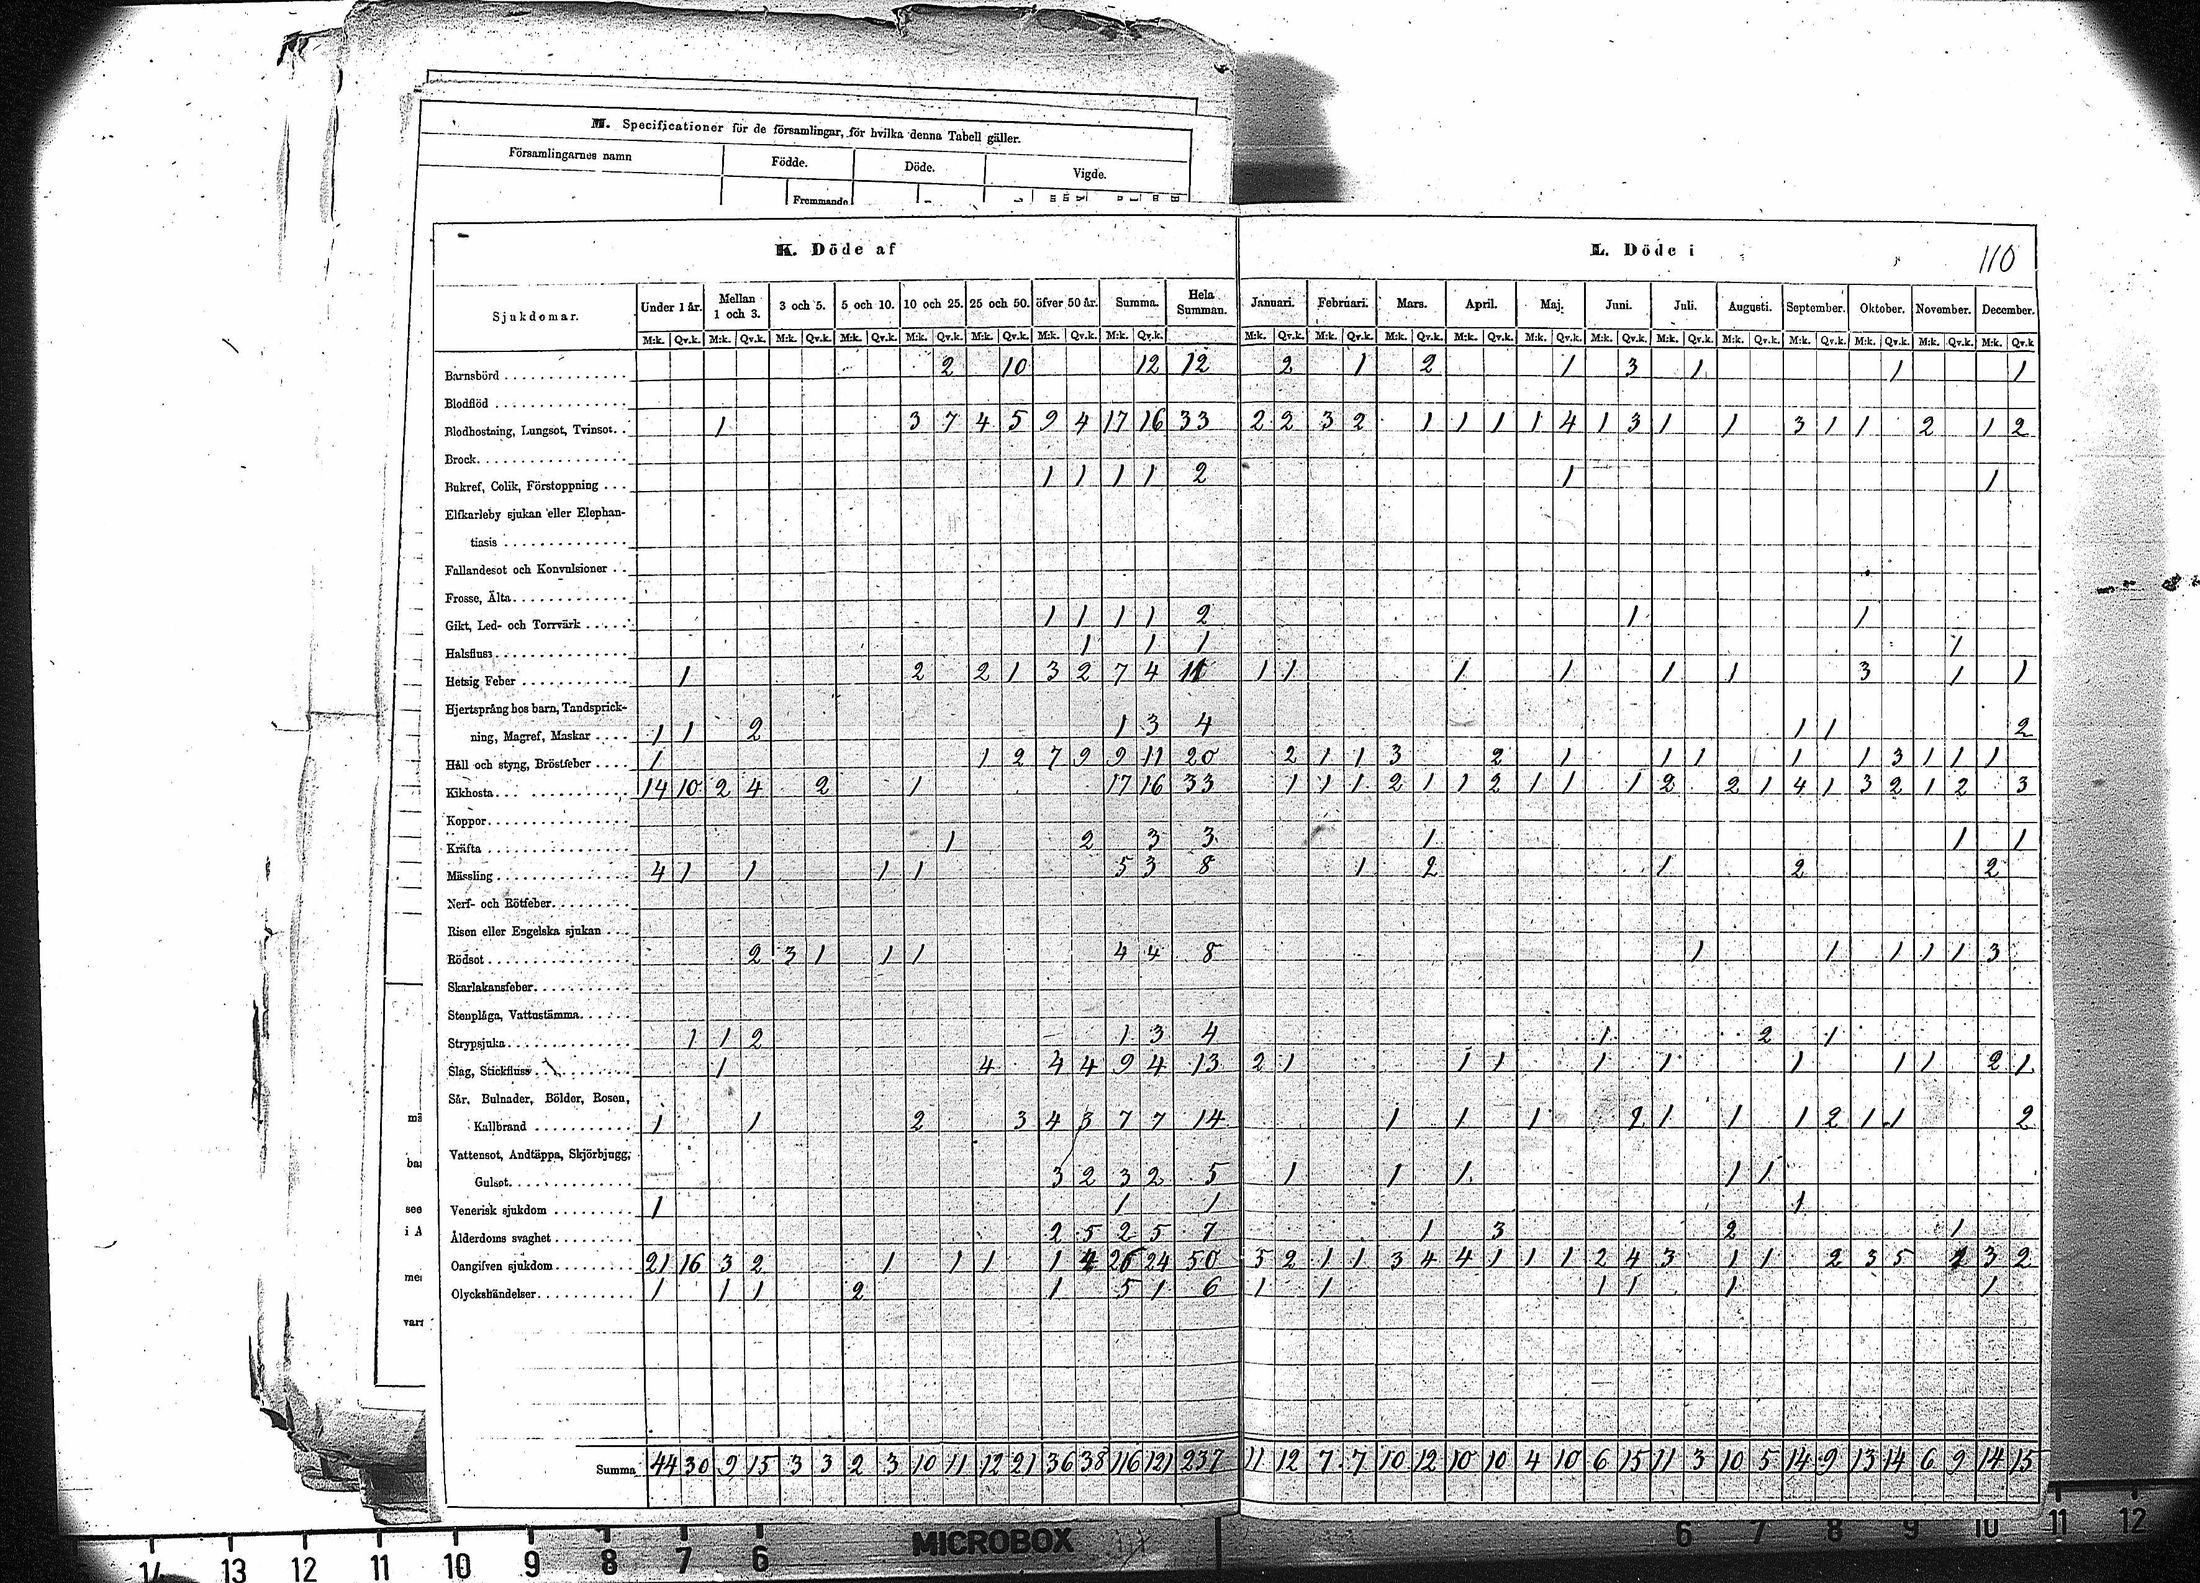 M. Specificationer för de församlingar, för hvilka denna Tabell gäller.
Församlingarnes namn Födde. Döde. Vigde.
Fremmande
K. Döde af L. Döde i 110
Sjukdomar. Under 1 år. Mellan 1 och 3. 3 och 5. 5 och 10. 10 och 25. 25 och 50. öfver 50 år. Summa. Hela Summan. Januari. Februari. Mars. April. Maj. Juni. Juli. Augusti. September. Oktober. November. December.
M:k. Qv.k. M:k. Qv.k. M:k. Qv.k. M:k. Qv.k. M:k. Qv.k. M:k. Qv.k. M:k. Qv.k. M:k. Qv.k. M:k. Qv.k. M:k. Qv.k. M:k. Qv.k. M:k. Qv.k. M:k. Qv.k. M:k. Qv.k. M:k. Qv.k. M:k. Qv.k. M:k. Qv.k. M:k. Qv.k. M:k. Qv.k. M:k. Qv.k
Barnsbörd 2 10 12 12 2 1 2 1 3 1 1 1
Blodflöd
Blodhostning, Lungsot, Tvinsot. 1 3 7 4 5 9 4 17 16 33 2 2 3 2 1 1 1 1 4 1 3 1 1 3 1 1 2 1 2
Brock
Bukref, Colik, Förstoppning 1 1 1 1 2 1 1
Elfkarleby sjukan eller Elephan-
tiasis
Fallandesot och Konvulsioner
Frosse, Älta
Gikt, Led- och Torrvärk 1 1 1 1 2 1 1
Halsfluss 1 1 1 1
Hetsig Feber 1 2 2 1 3 2 7 4 11 1 1 1 1 1 1 3 1 1
Hjertsprång hos barn, Tandsprick-
ning, Magref, Maskar 1 1 2 1 3 4 1 1 2
Håll och styng, Bröstfeber 1 1 2 7 9 9 11 20 2 1 1 3 2 1 1 1 1 1 3 1 1 1
Kikhosta 14 10 2 4 2 1 17 16 33 1 1 1 2 1 1 2 1 1 1 2 2 1 4 1 3 2 1 2 3
Koppor
Kräfta 1 2 3 3 1 1 1
Mässling 4 1 1 1 1 5 3 8 1 2 1 2 2
Nerf- och Rötfeber
Risen eller Engelska sjukan
Rödsot 2 3 1 1 1 4 4 8 1 1 1 1 1 3
Skarlakansfeber
Stenplåga, Vattustämma
Strypsjuka 1 1 2 1 3 4 1 2 1
Slag, Stickfluss 1 4 4 4 9 4 13 2 1 1 1 1 1 1 1 1 2 1
Sår, Bulnader, Bölder, Rosen,
Kallbrand 1 1 2 3 4 3 7 7 14 1 1 1 2 1 1 1 2 1 1 2
Vattensot, Andtäppa, Skjörbjugg,
Gulsot 3 2 3 2 5 1 1 1 1 1
Venerisk sjukdom 1 1 1 1
Ålderdoms svaghet 2 5 2 5 7 1 3 2 1
Oangifven sjukdom 21 16 3 2 1 1 1 1 4 26 24 50 5 2 1 1 3 4 4 1 1 1 2 4 3 1 1 2 3 5 3 2
Olyckshändelser 1 1 1 2 1 5 1 6 1 1 1 1 1 1
Summa 44 30 9 15 3 3 2 3 10 11 12 21 36 38 116 121 237 11 12 7 7 10 12 10 10 4 10 6 15 11 3 10 5 14 9 13 14 6 9 14 15
14 13 12 11 10 9 8 7 6 MICROBOX 6 7 8 9 10 11 12